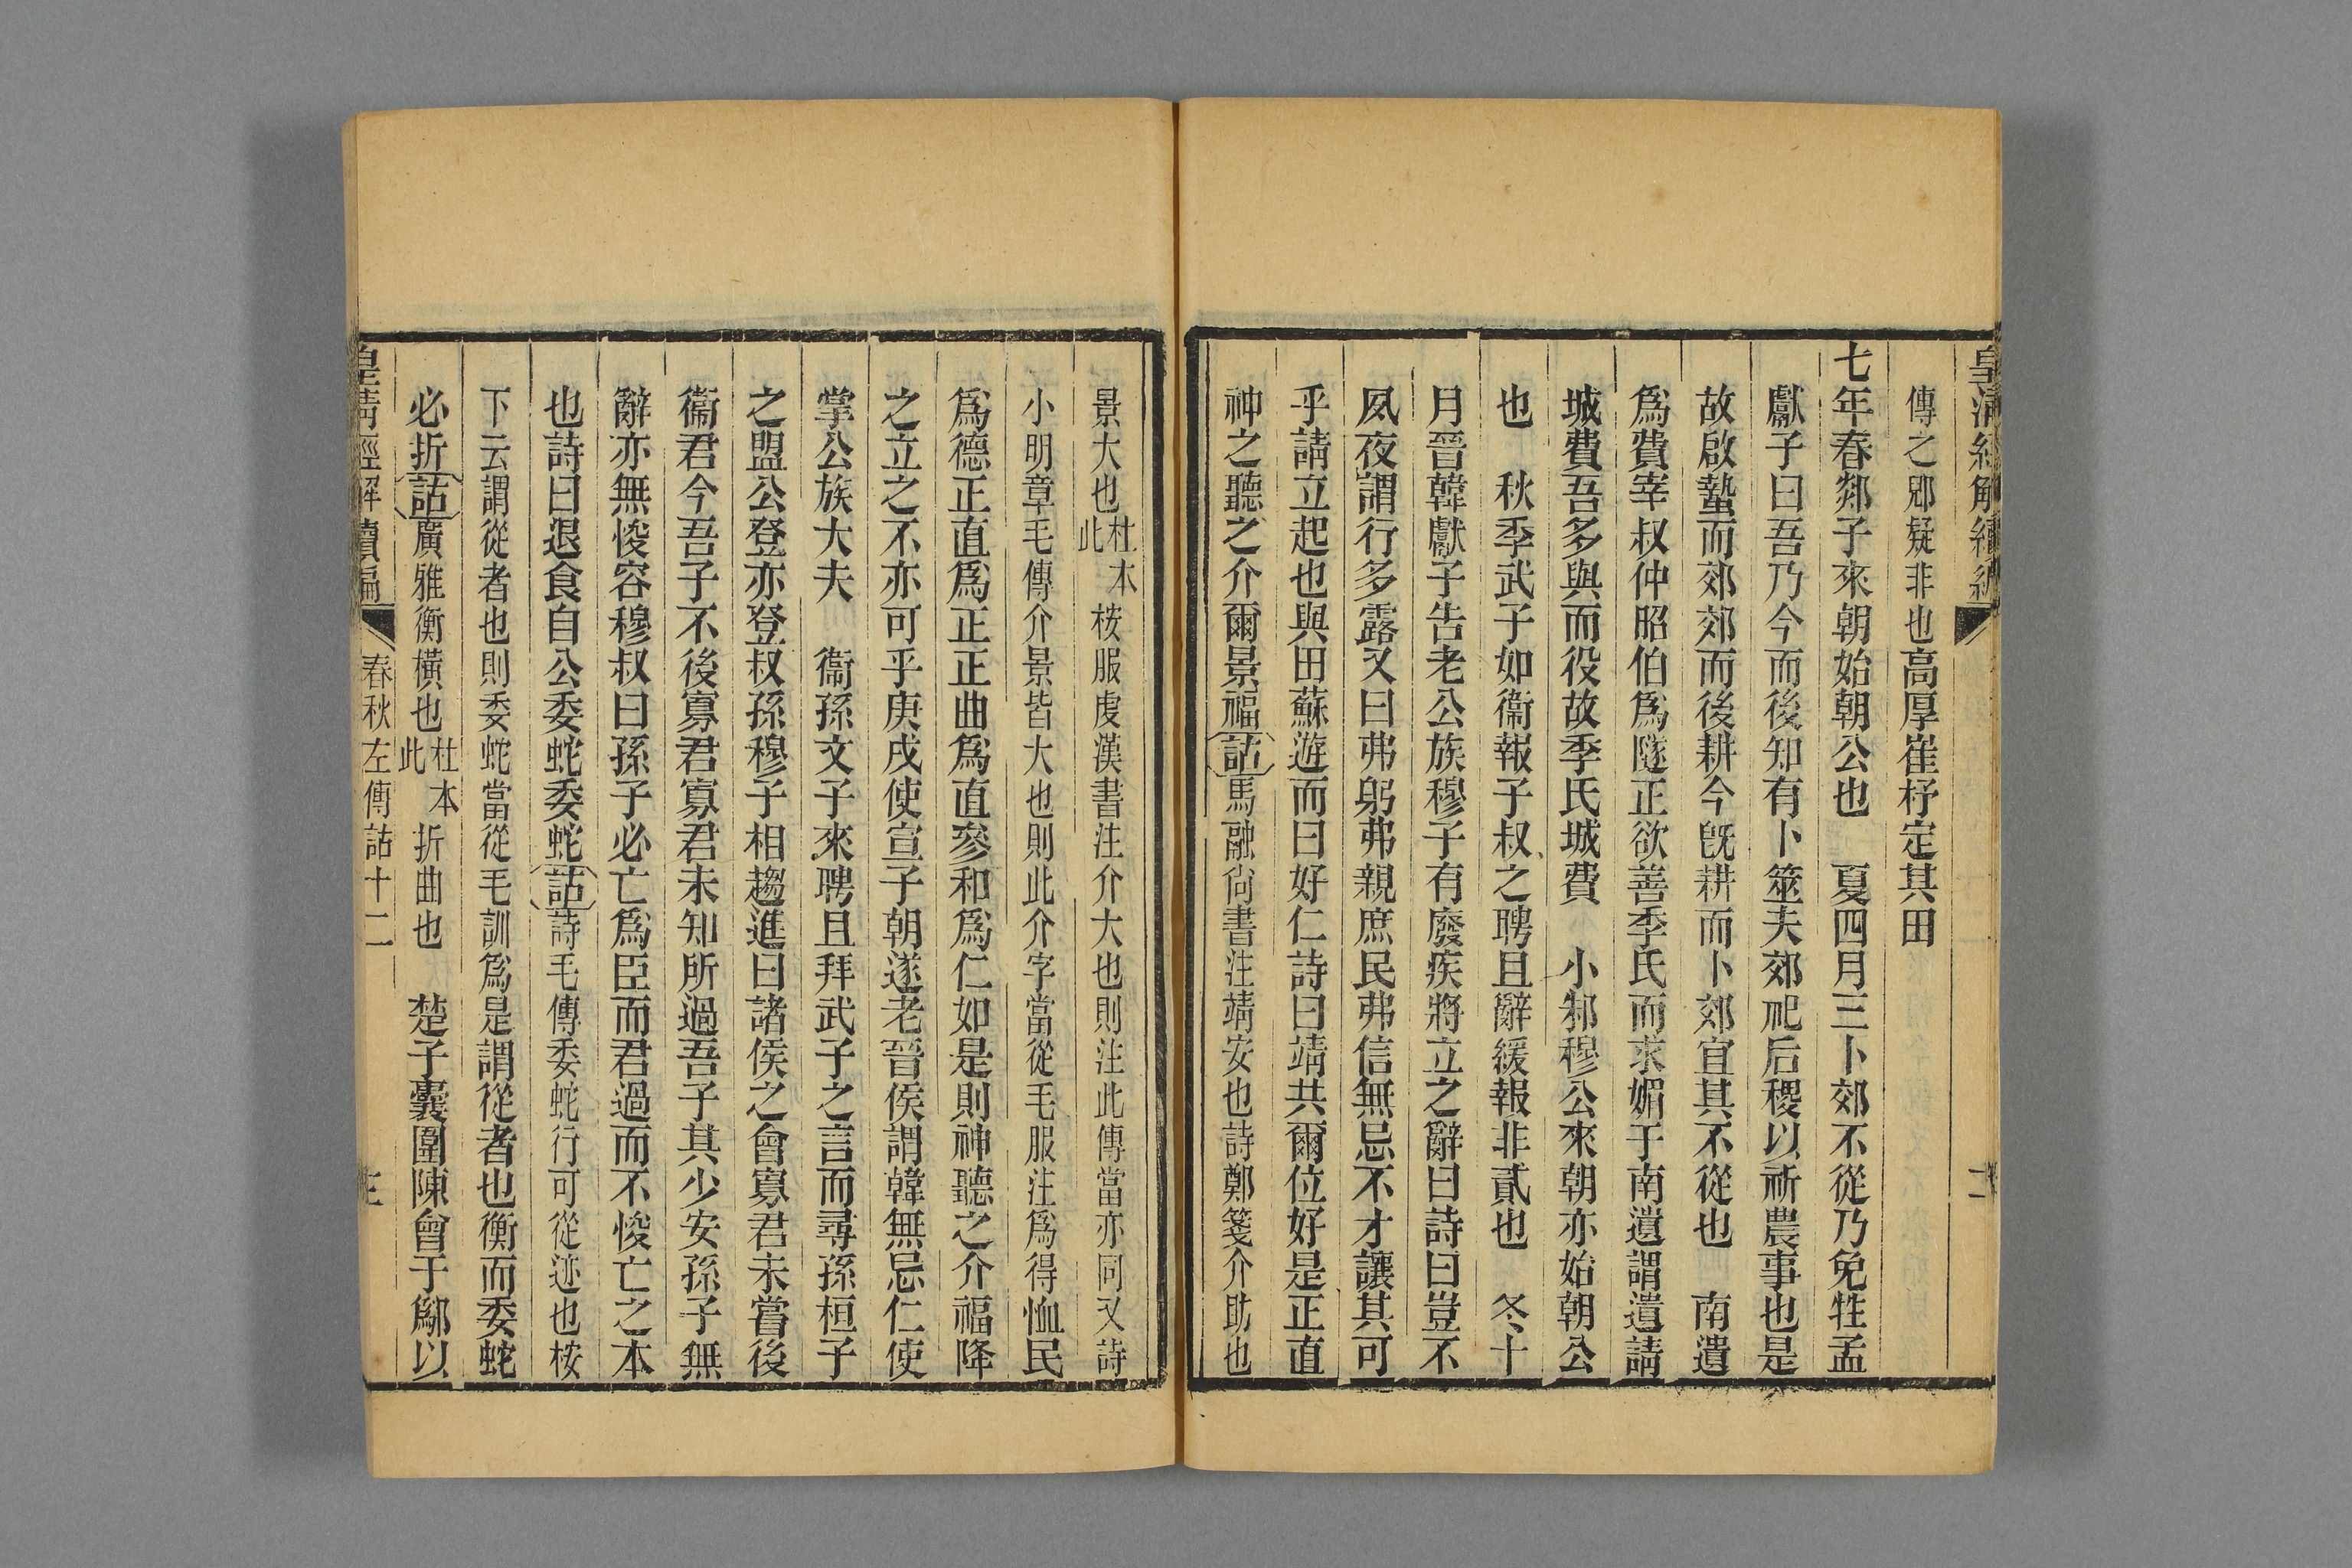 皇清經解續編
十二
傳之郳疑非也高厚崔杼定其田
七年春郯子來朝始朝公也　夏四月三卜郊不從乃免牲孟
獻子曰吾乃今而後知有卜筮夫郊祀后稷以祈農事也是
故啟蟄而郊郊而後耕今旣耕而卜郊宜其不從也　南遺
爲費宰叔仲昭伯爲隧正欲善季氏而求媚于南遺謂遺請
城費吾多與而役故季氏城費　小邾穆公來朝亦始朝公
也　秋季武子如衞報子叔之聘且辭緩報非貳也　冬十
月晉韓獻子告老公族穆子有廢疾將立之辭曰詩曰豈不
夙夜謂行多露又曰弗躬弗親庶民弗信無忌不才讓其可
乎請立起也與田蘇遊而曰好仁詩曰靖共爾位好是正直
神之聽之介爾景福詁馬融尙書注靖安也詩鄭箋介助也
景大也杜本此桉服虔漢書注介大也則注此傳當亦同又詩
小明章毛傳介景皆大也則此介字當從毛服注爲得恤民
爲德正直爲正正曲爲直參和爲仁如是則神聽之介福降
之立之不亦可乎庚戌使宣子朝遂老晉侯謂韓無忌仁使
掌公族大夫　衞孫文子來聘且拜武子之言而尋孫桓子
之盟公登亦登叔孫穆子相趨進曰諸侯之會寡君未嘗後
衞君今吾子不後寡君寡君未知所過吾子其少安孫子無
辭亦無悛容穆叔曰孫子必亡爲臣而君過而不悛亡之本
也詩曰退食自公委蛇委蛇詁詩毛傳委蛇行可從迹也桉
下云謂從者也則委蛇當從毛訓爲是謂從者也衡而委蛇
必折詁廣雅衡橫也杜本此折曲也　楚子囊圍陳會于鄬以
皇清經解續編
春秋左傳詁十二